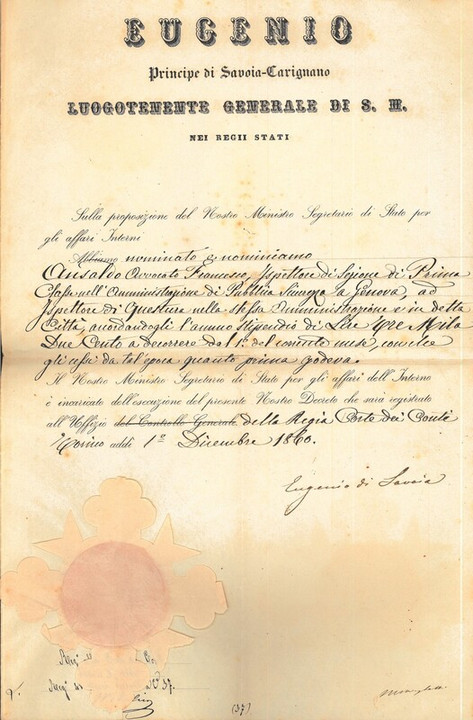 EUGENIO
Principe di Savoia-Carignano
LUOGOTENENTE GENERALE DI S. M.
NEI REGII STATI
Sulla proposizione del Nostro Ministro Segretario di Stato per
gli affari Interni
Abbiamo nominato e nominiamo
Ansaldo Avvocato Francesco, Ispettore di Sezione di Prima
Classe nell'Amministrazione di Pubblica Sicurezza a Genova, ad
Ispettore di Questura nella stessa Amministrazione e in detta
Città, accordandogli l'annuo stipendio di Lire Tre Mila
Due Cento a decorrere dal 1º del corrente mese, con che
gli cessi da tal epoca quanto prima godeva.
Il Nostro Ministro Segretario di Stato per gli affari dell'Interno
è incaricato dell'esecuzione del presente Nostro Decreto che sarà registrato
all'Uffizio del Controllo Generale della Regia Corte dei Conti
Torino addì 1º Dicembre 1860.
Eugenio di Savoia
37.
(37)